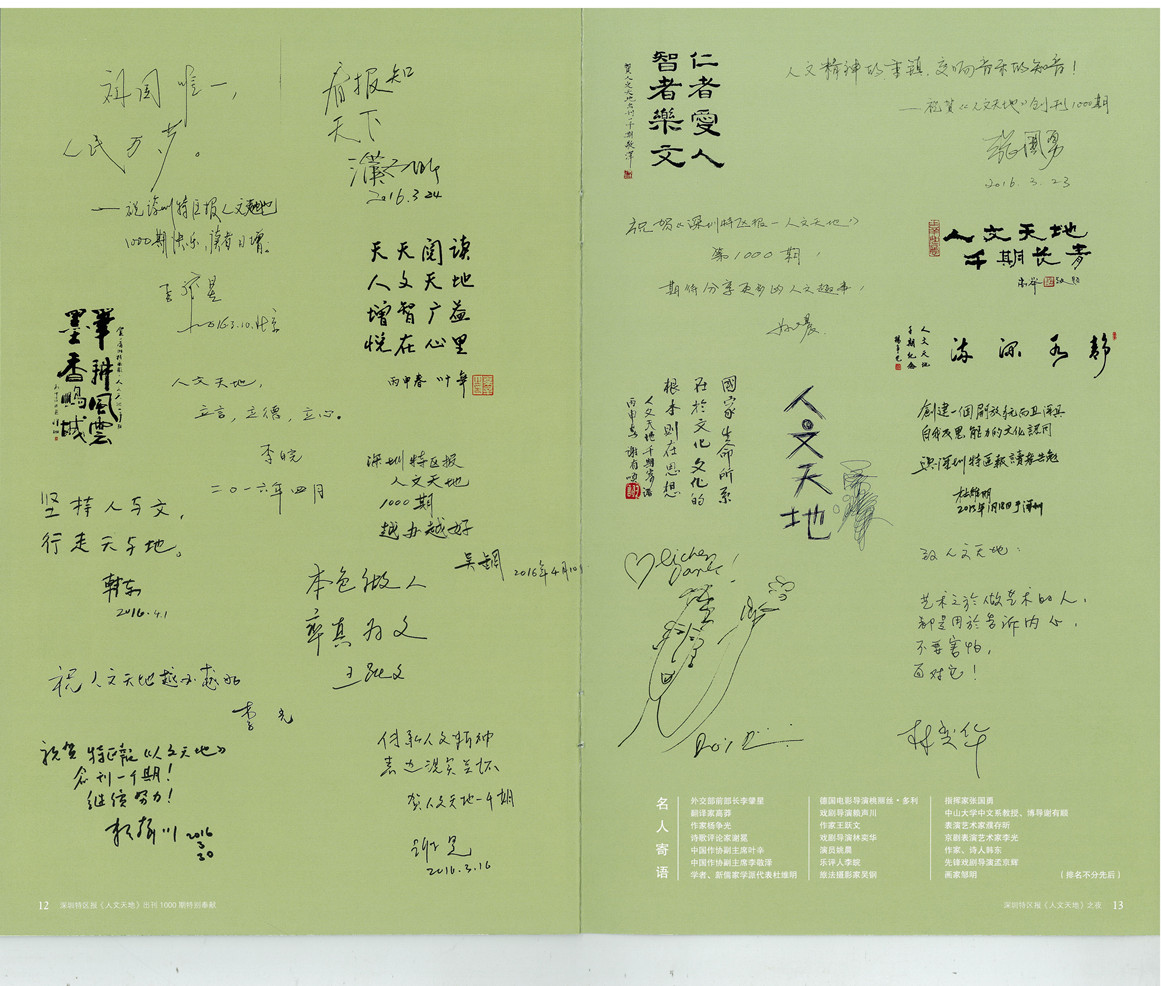 祖国唯一，
人民万岁。
——祝深圳特区报人文天地
1000期快乐，读者日增。
李肇星
2016.3.10.北京
看报知
天下
濮存昕
2016.3.24
天天阅读
人文天地
增智广益
悦在心里
丙申春 叶辛
笔耕风云
墨香鹏城
人文天地，
立言，立德，立心。
李皖
二〇一六年四月
深圳特区报
人文天地
1000期
越办越好
吴钢 2016年4月10日
坚持人与文，
行走天与地。
韩东
2016.4.1
本色做人
率真为文
王跃文
祝人文天地越办越好
李光
祝贺特区报《人文天地》
创刊一千期！
继续努力！
2016
3
20
传承人文精神
贺人文天地一千期
谢冕
2016.3.16
12 深圳特区报《人文天地》出刊1000期特别奉献
仁者爱人
智者樂文
賀人文天地出刊一千期敬澤
人文精神的重镇，交响音乐的知音！
——祝贺《人文天地》创刊1000期
張國勇
2016.3.23
祝贺《深圳特区报—人文天地》
第1000期，
期待分享更多的人文趣事，
姚晨
人文天地
千期长青
高莽 敬贺
静为深流
人文天地
千期纪念
杨争光
國家生命所系
在於文化文化的
根本则在思想
人文天地千期寄语
丙申春 謝有順
人文天地
創建一個開放多元而且深具
自我反思能力的文化認同
杜維明
2015年1月18日于深圳
♡lichen
Dank!
致人文天地：
艺术之於做艺术的人，
都是用於告诉内心，
不要害怕，
面对它！
林奕华
名人寄语
外交部前部长李肇星
翻译家高莽
作家杨争光
诗歌评论家谢冕
中国作协副主席叶辛
中国作协副主席李敬泽
学者、新儒家学派代表杜维明
德国电影导演桃丽丝·多利
戏剧导演赖声川
作家王跃文
戏剧导演林奕华
演员姚晨
乐评人李皖
旅法摄影家吴钢
指挥家张国勇
中山大学中文系教授、博导谢有顺
表演艺术家濮存昕
京剧表演艺术家李光
作家、诗人韩东
先锋戏剧导演孟京辉
画家邹明
（排名不分先后）
深圳特区报《人文天地》之夜 13